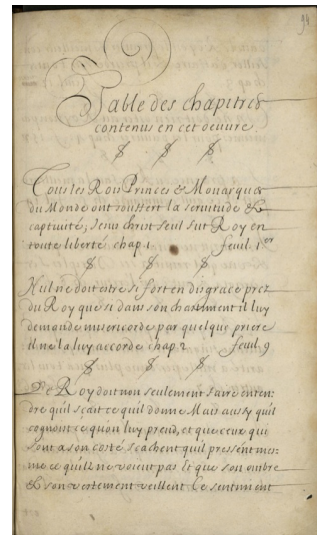 94
Table des chapitres
contenus en cet oeuvre
Tous les Rois Princes & Monarques
du Monde ont souffert la servitude &
captivité; Jesus christ seul fut Roy en
toute liberté chap 1 feuil. 1.er
Nul ne doit estre si fort en disgrace prez
du Roy que si dans son chastiment il luy
demande misericorde par quelque priere
il ne la luy accorde chap 2 feuil. 9
Le Roy doit non seulement faire enten:
dre quil scait ce quil donne Mais aussy quil
cognoit ce quon luy prend, et que ceux qui
sont a son costé scachent quil pressent mes:
me ce quil ne voient pas Et que son ombre
& son vestement veillent Ce sentiment